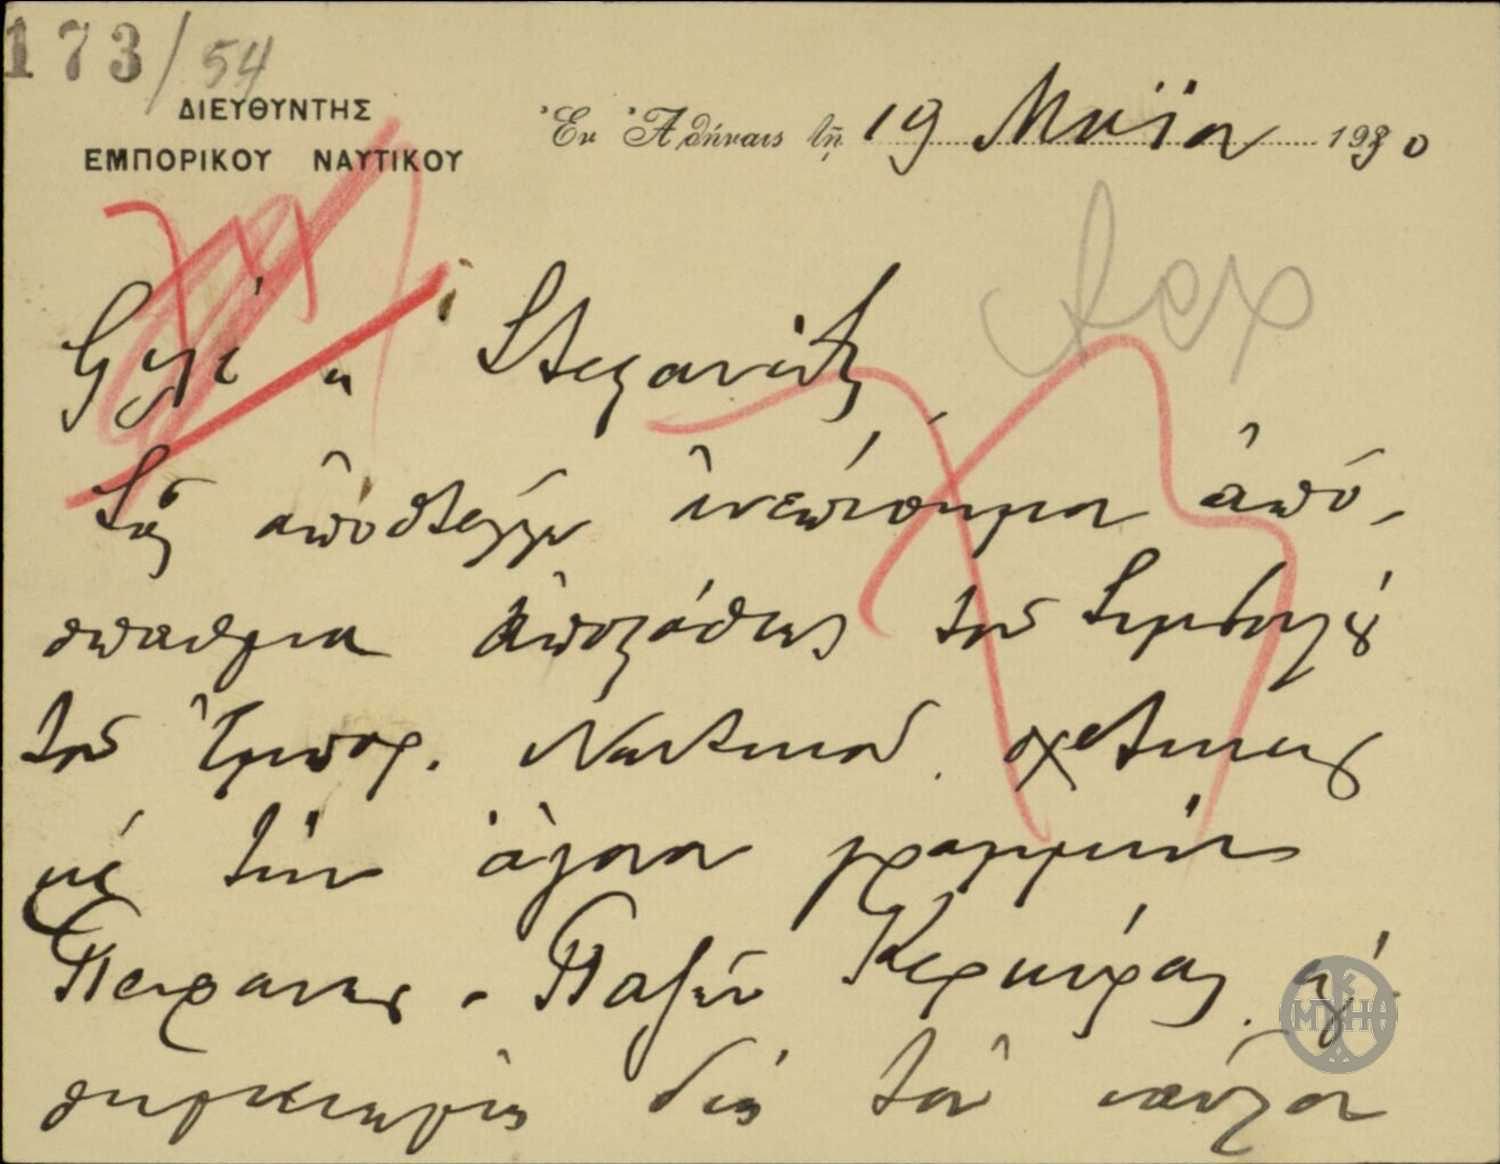 173/54
ΔΙΕΥΘΥΝΤΗΣ
ΕΜΠΟΡΙΚΟΥ ΝΑΥΤΙΚΟΥ
Ἐν Ἀθήναις τῇ 19 Μαΐου 1930
Φίλε κ Στεφανίδη
Σᾶς ἀποστέλλω ἀνεπίσημον ἀπό-
σπασμα ἀποφάσεως τοῦ Συμβουλίου
τοῦ Ἐμπορ. Ναυτικοῦ σχετικῶς
μὲ τὴν ἄγονον γραμμὴν
Πειραιῶς - Παξῶν Κερκύρας
διὰ τὸν
ΜΚΗ